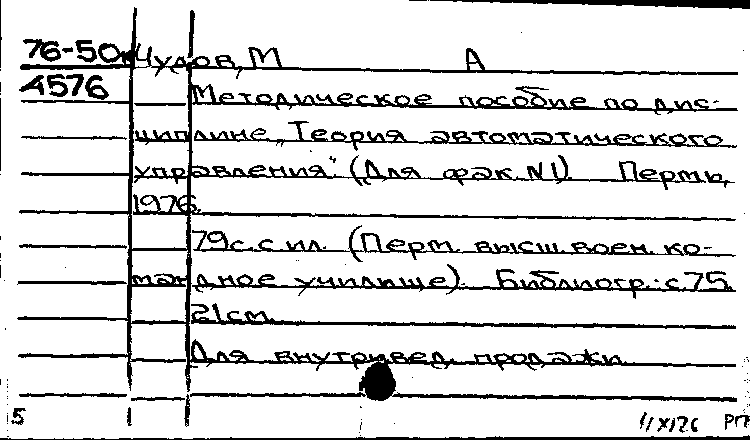 76-50 Чудов, М А
4576
Методическое пособие по дис-
циплине „Теория автоматического
управления" (Для фак. N1) Пермь,
1976.
79с. с ил. (Перм. высш. воен. ко-
мандное училище). Библиогр.: с. 75
21см.
Для внутривед. продажи
5